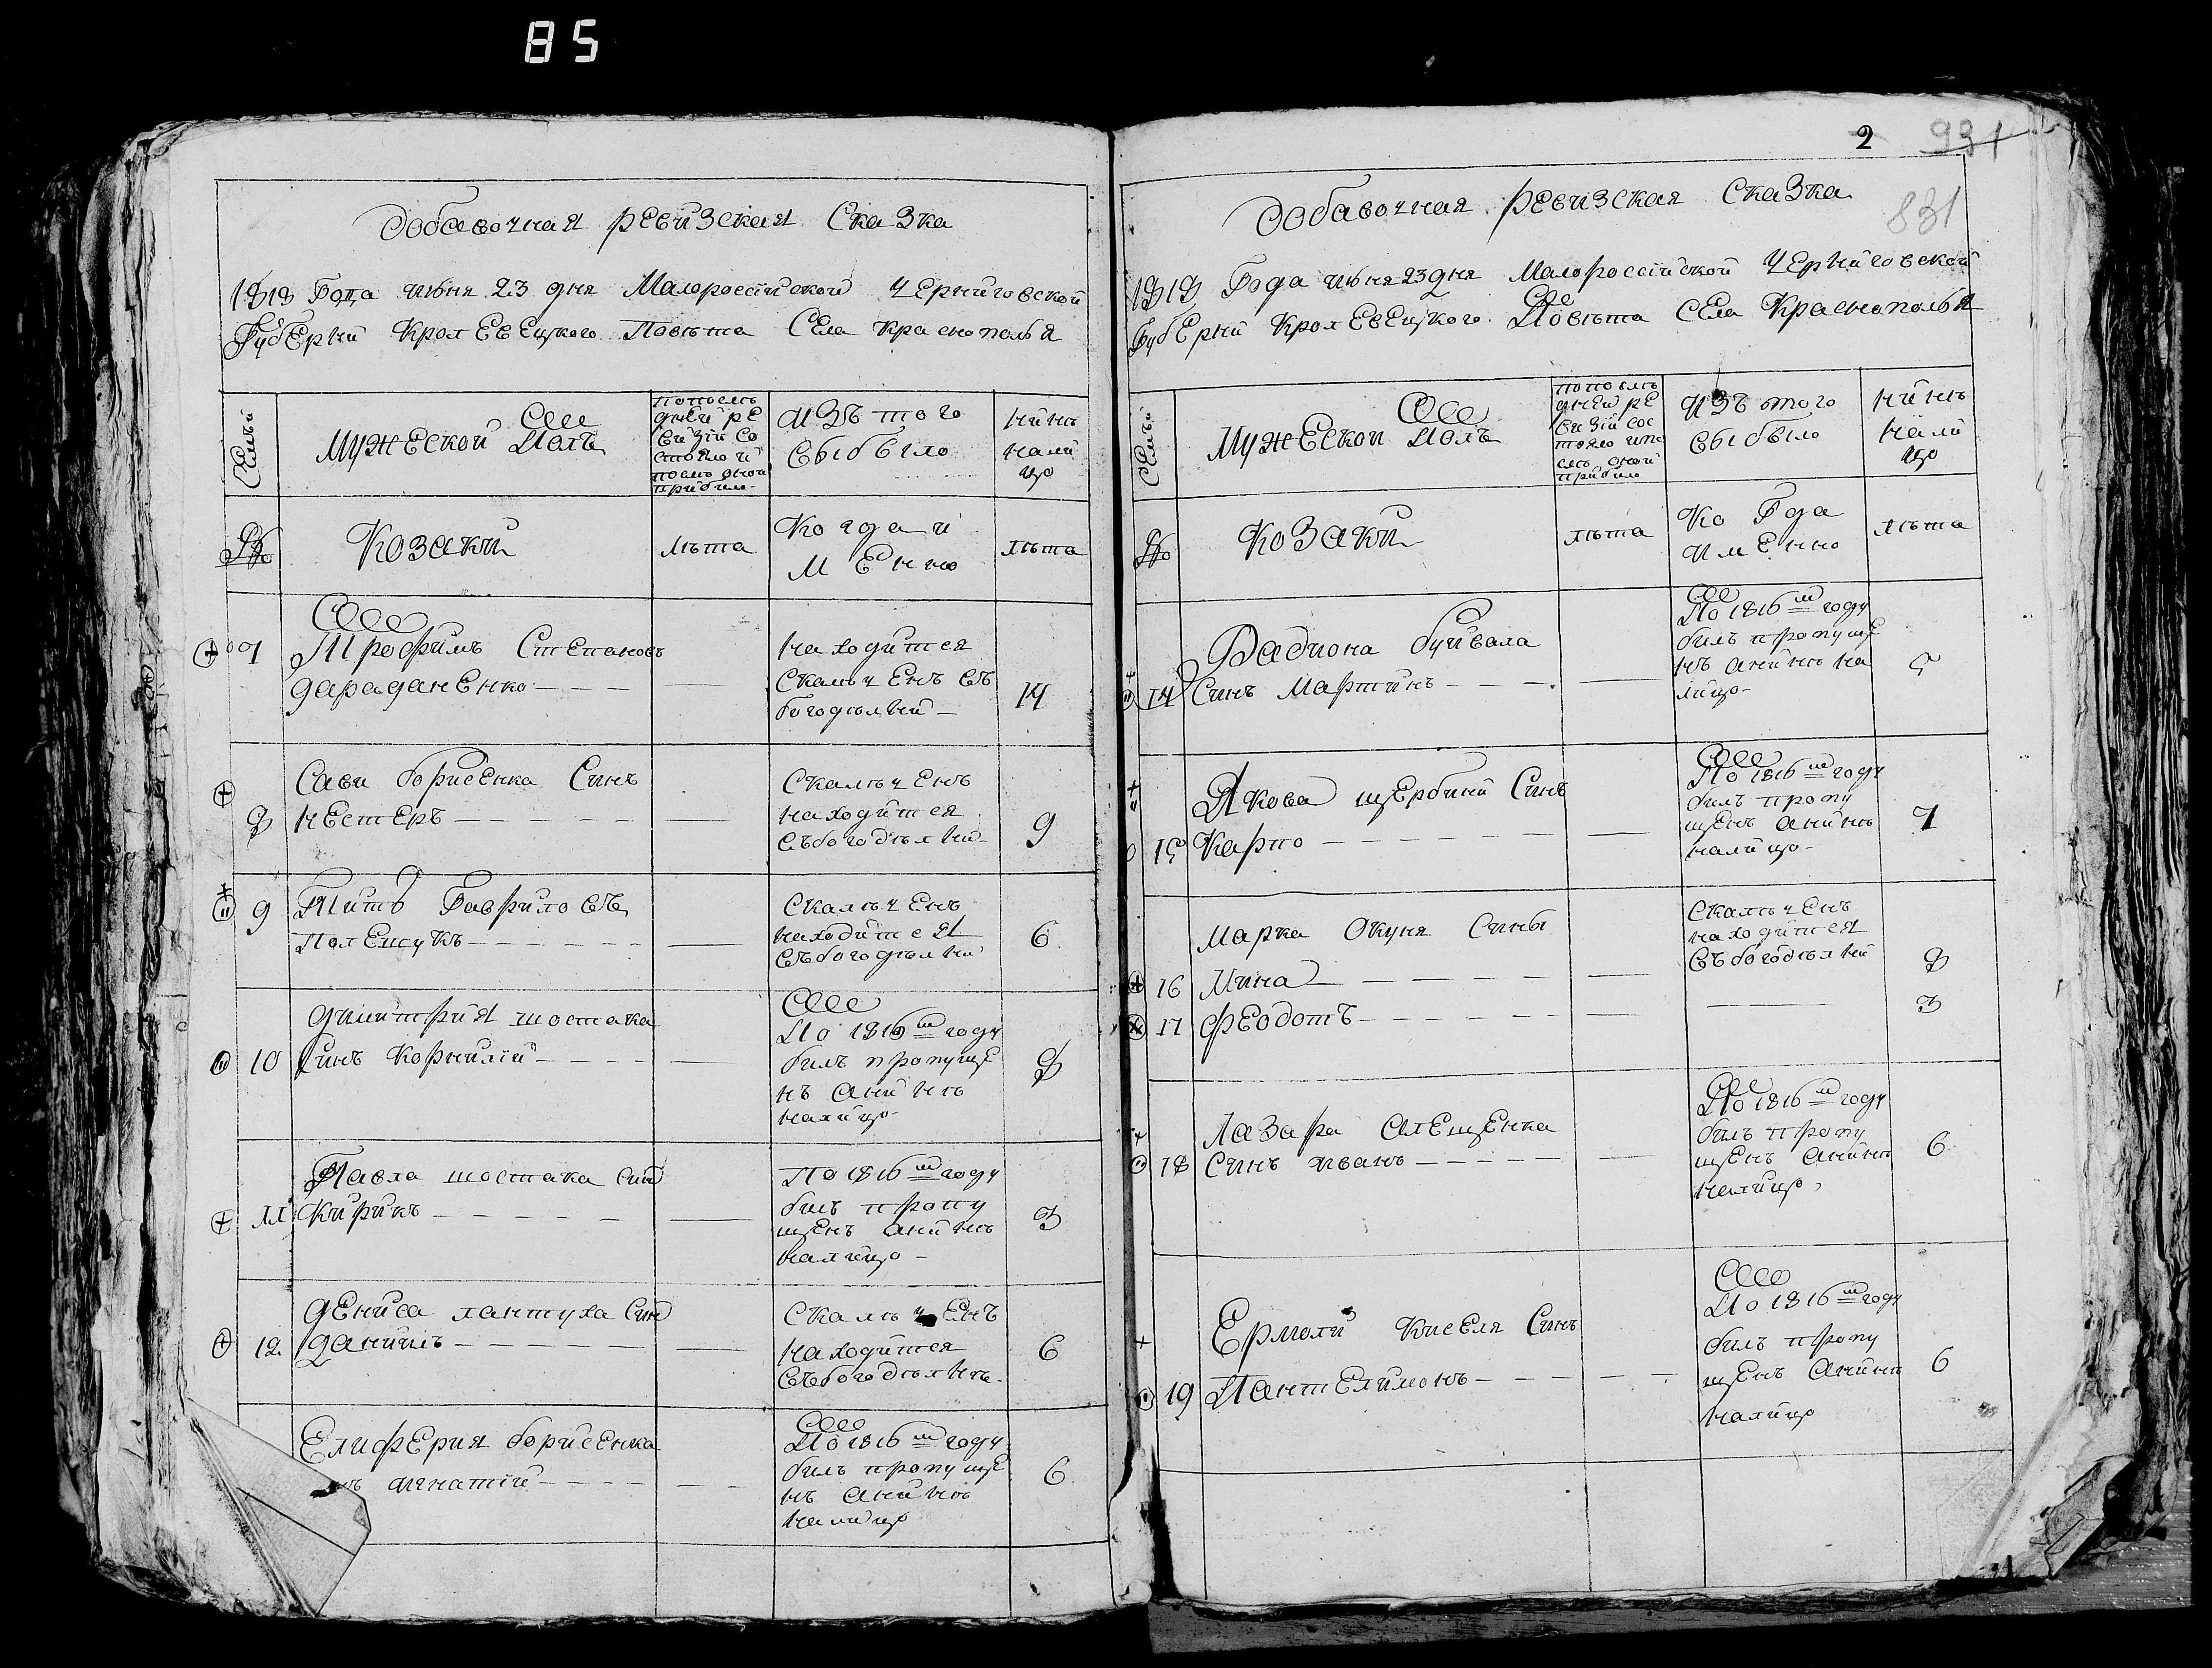 85
Добавочная ревизская Сказка
1818 Года июня 23 дня Малороссийской Черниговской
Губернии Кролевецкого Повета Села Краснополья
Семьи
Мужеской Полъ
попослѣ
дней ре
визіи со
стояло и
послѣ оной
прибило
изъ того
выбыло
нинѣ
нали
цо
№
Козаки
лѣта
Когда и
менно
лѣта
7
Трофимъ Степановъ
дараданенко
находится
Скалѣченъ въ
богодѣлни
14
8
Сави борисенка Синъ
нестеръ
Скалѣченъ
находится
въбогодѣлни
9
9
Титъ Гавриловъ
Полещукъ
Скалѣченъ
находится
въбогодѣлни
6
10
дмитрия шостака
Синъ Корнилій
По 1816му году
билъ пропуще
нъ анинѣ
налицо
8
11
Павла шостака Син
Кирикъ
По 1816му году
билъ пропу
щенъ анинѣ
налицо
3
12
дениса лантуха Син
даниилъ
Скалѣченъ
находится
въбогодѣлнѣ
6
Елиферия борисенка
нъ игнатій
По 1816му году
билъ пропуще
нъ анинѣ
налицо
6
2
931
831
Добавочная ревизская Сказка
1818 Года июня 23 дня Малороссійской Черниговской
Губерний Кролевецкого Повѣта Села Краснополья
Семьи
Мужескои Полъ
попослѣ
дней ре
визіи сос
тояло ипо
слѣ оной
прибило
изъ того
выбыло
нинѣ
нали
цо
№
козаки
лѣта
Ко Гда
именно
лѣта
14
Радиона буйвала
Синъ Мартинъ
По 1816му году
билъ пропуще
нъ анинѣ на
лицо
5
15
Якова щербини Синъ
Карпо
По 1816му году
билъ пропу
щенъ анинѣ
налицо
7
Марка Окуня Сины
Скалѣченъ
находится
въбогодѣлни
16 Мина
8
17 Феодотъ
3
18
Лазара Алещенка
Синъ иванъ
По 1816му году
билъ пропу
щенъ анинѣ
налицо
6
19
Ермоли Киселя Синъ
Пантелимонъ
По 1816му году
билъ пропу
щенъ анинѣ
налицо
6